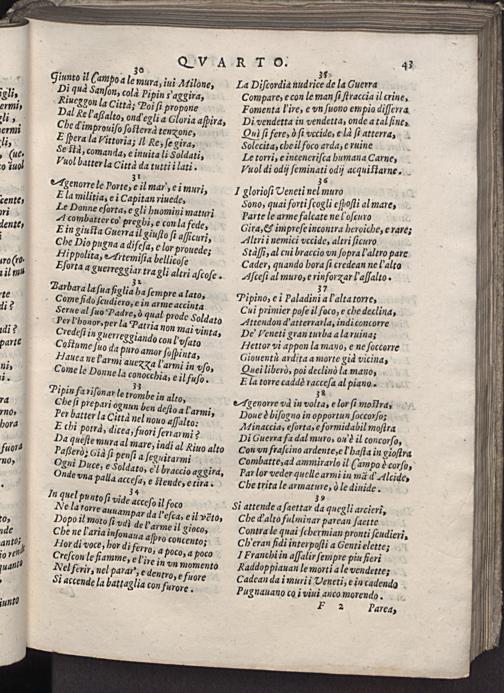 QVARTO. 43
30
Giunto il Campo a le mura, iui Milone,
Di quà Sanson, colà Pipin s'aggira,
Riueggon la Città; Poi si propone
Dal Re l'assalto, ond'egli a Gloria aspira,
Che d'improuiso sosterrà tenzone,
E spera la Vittoria; Il Re, se gira,
Se stà, comanda, e inuita li Soldati,
Vuol batter la Città da tutti i lati.
31
Agenorre le Porte, e il mar, e i muri,
E la militia, e i Capitan riuede,
Le Donne esorta, e gli huomini maturi
A combatter co' preghi, e con la fede,
E in giusta Guerra il giusto si assicuri,
Che Dio pugna a difesa, e lor prouede;
Hippolita, Artemisia bellicose
Esorta a guerreggiar tra gli altri ascose.
32
Barbara la sua figlia ha sempre a lato,
Come fido scudiero, e in arme accinta
Serue al suo Padre, ò qual prode Soldato
Per l'honor, per la Patria non mai vinta,
Credesi in guerreggiando con l'usato
Costume suo da puro amor sospinta,
Hauea ne l'armi auezza l'armi in vso,
Come le Donne la conocchia, e il fuso.
33
Pipin fa risonar le trombe in alto,
Che si prepari ognun ben desto a l'armi,
Per batter la Città nel nouo assalto:
E chi potrà, dicea, fuori serrarmi?
Da queste mura al mare, indi al Riuo alto
Passerò; Già si pensi a seguitarmi
Ogni Duce, e Soldato, e'l braccio aggira,
Onde vna palla accesa, e stende, e tira.
34
In quel punto si vide acceso il foco
Ne la torre auuampar da l'esca, e il vēto,
Dopo il moto si udì de l'arme il gioco,
Che ne l'aria insonaua aspro concento;
Hor di voce, hor di ferro, a poco, a poco
Crescon le fiamme, e l'ire in vn momento
Nel ferir, nel parar', e dentro, e fuore
Si accende la battaglia con furore.
35
La Discordia nudrice de la Guerra
Compare, e con le man si straccia il crine,
Fomenta l'ire, e vn suono empio disserra
Di vendetta in vendetta, onde a tal fine,
Qui si fere, ò si vccide, e là si atterra,
Solecita, che il foco arda, e ruine
Le torri, e incenerisca humana Carne,
Vuol di odij seminati odij acquistarne.
36
I gloriosi Veneti nel muro
Sono, quai forti scogli esposti al mare,
Parte le arme falcate ne l'oscuro
Gira, & imprese incontra heroiche, e rare;
Altri nemici vccide, altri sicuro
Stàssi, al cui braccio vn sopra l'altro pare
Cader, quando si credean ne l'alto
Ascesi al muro, e rinforzar l'assalto.
37
Pipino, e i Paladini a l'alta torre,
Cui primier pose il foco, e che declina,
Attendon d'atterrarla, indi concorre
De' Veneti gran turba a la ruina;
Hettor vi appon la mano, e ne soccorre
Giouentù ardita a morte già vicina,
Quei liberò, poi declinò la mano,
E la torre caddè raccesa al piano.
38
Agenorre và in volta, e lor si mostra,
Doue è bisogno in opportun soccorso;
Minaccia, esorta, e formidabil mostra
Di Guerra fa dal muro, ou'è il concorso,
Con vn frascino ardente, e l'hasta in giostra
Combatte, ad ammirarlo il Campo è corso,
Par lor veder quelle armi in mã d'Alcide,
Che trita le armature, ò le diuide.
39
Si attende a saettar da quegli arcieri,
Che d'alto fulminar parean saette
Contra le quai schermian pronti scudieri,
Ch'eran fidi interposti a Genti elette;
I Franchi in assalir sempre piu fieri
Raddoppiauan le morti a le vendette;
Cadean da i muri i Veneti, e in cadendo
Pugnauano co i viui anco morendo.
F 2 Parea,